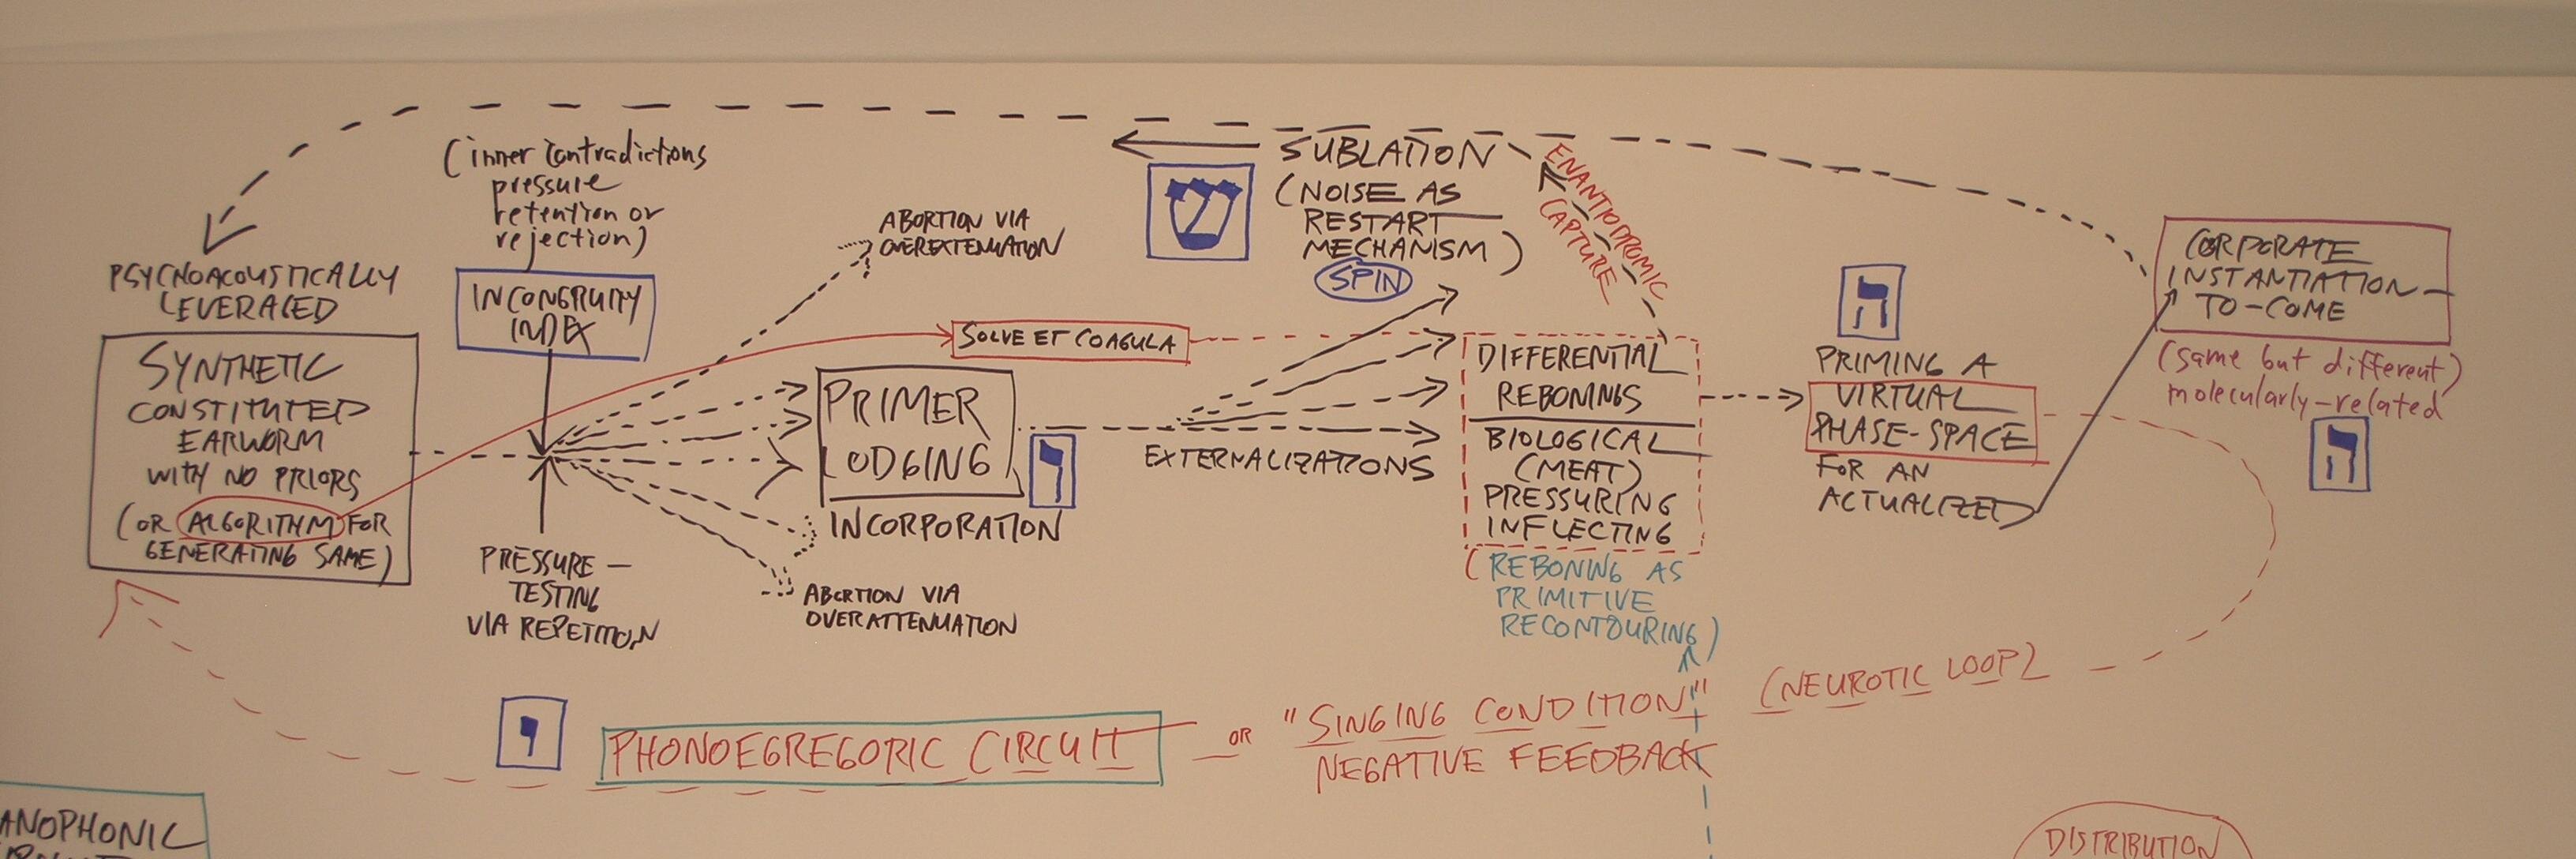 (inner contradictions
pressure
retention or
rejection)
INCONGRUITY
INDEX
PSYCHOACOUSTICALLY
LEVERAGED
SYNTHETIC
CONSTITUTED
EARWORM
WITH NO PRIORS
(OR ALGORITHM FOR
GENERATING SAME)
PRESSURE-
TESTING
VIA REPETITION
ABORTION VIA
OVEREXTENUATION
SOLVE ET COAGULA
PRIMER
LODGING
ו
INCORPORATION
ABORTION VIA
OVERATTENUATION
EXTERNALIZATIONS
ש
SUBLATION
(NOISE AS
RESTART
MECHANISM)
SPIN
ENANTIODROMIC
CAPTURE
DIFFERENTIAL
REBONINGS
BIOLOGICAL
(MEAT)
PRESSURING
INFLECTING
(REBONING AS
PRIMITIVE
RECONTOURING)
ה
PRIMING A
VIRTUAL
PHASE-SPACE
FOR AN
ACTUALIZED
CORPORATE
INSTANTIATION-
TO-COME
(same but different)
molecularly-related
ה
י
PHONOEGREGORIC CIRCUIT OR "SINGING CONDITION" (NEUROTIC LOOP)
NEGATIVE FEEDBACK
ANOPHONIC
DISTRIBUTION